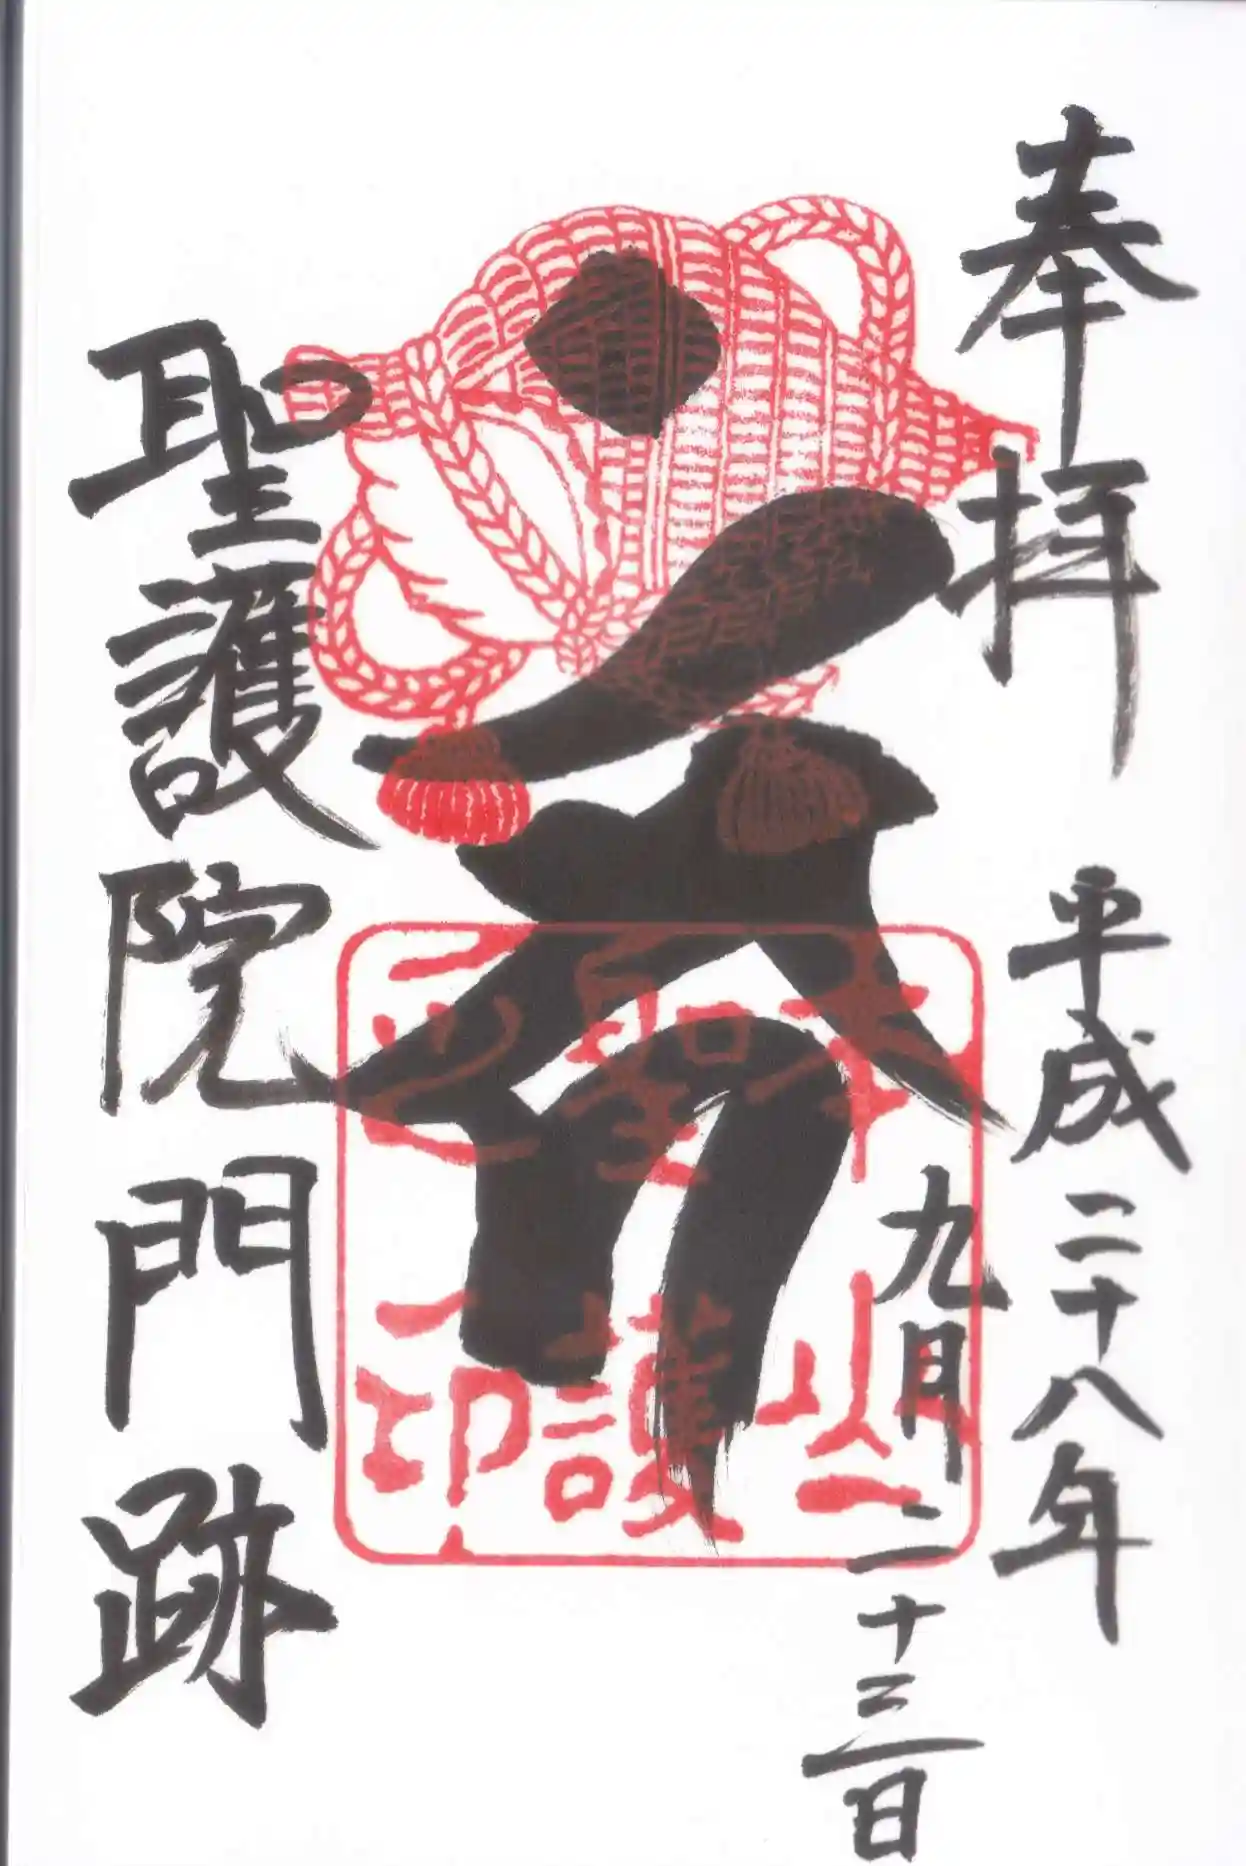 奉拝 平成二十八年
九月二十三日
本山
聖護
印
聖護院門跡